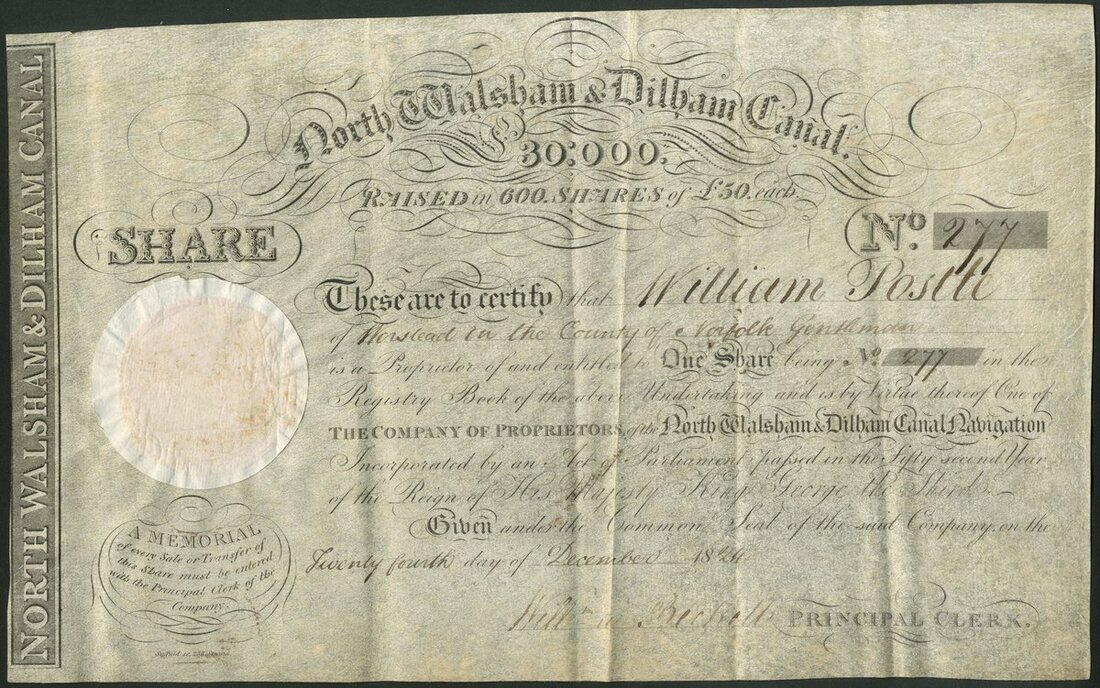 NORTH WALSHAM & DILHAM CANAL
North Walsham & Dilham Canal.
£
30:000.
RAISED in 600 SHARES of £50. each
SHARE
No. 277
These are to certify that William Postle
of Worstead in the County of Norfolk Gentleman
is a Proprietor of and entitled to One Share being No. 277 in the
Registry Book of the above Undertaking and is by Virtue thereof One of
THE COMPANY OF PROPRIETORS, of the North Walsham & Dilham Canal Navigation
Incorporated by an Act of Parliament passed in the Fifty second Year
of the Reign of His Majesty King George the Third.
Given under the Common Seal of the said Company, on the
Twenty fourth day of December 1824
PRINCIPAL CLERK.
A MEMORIAL
of every Sale or Transfer of
this Share must be entered
with the Principal Clerk of the
Company.